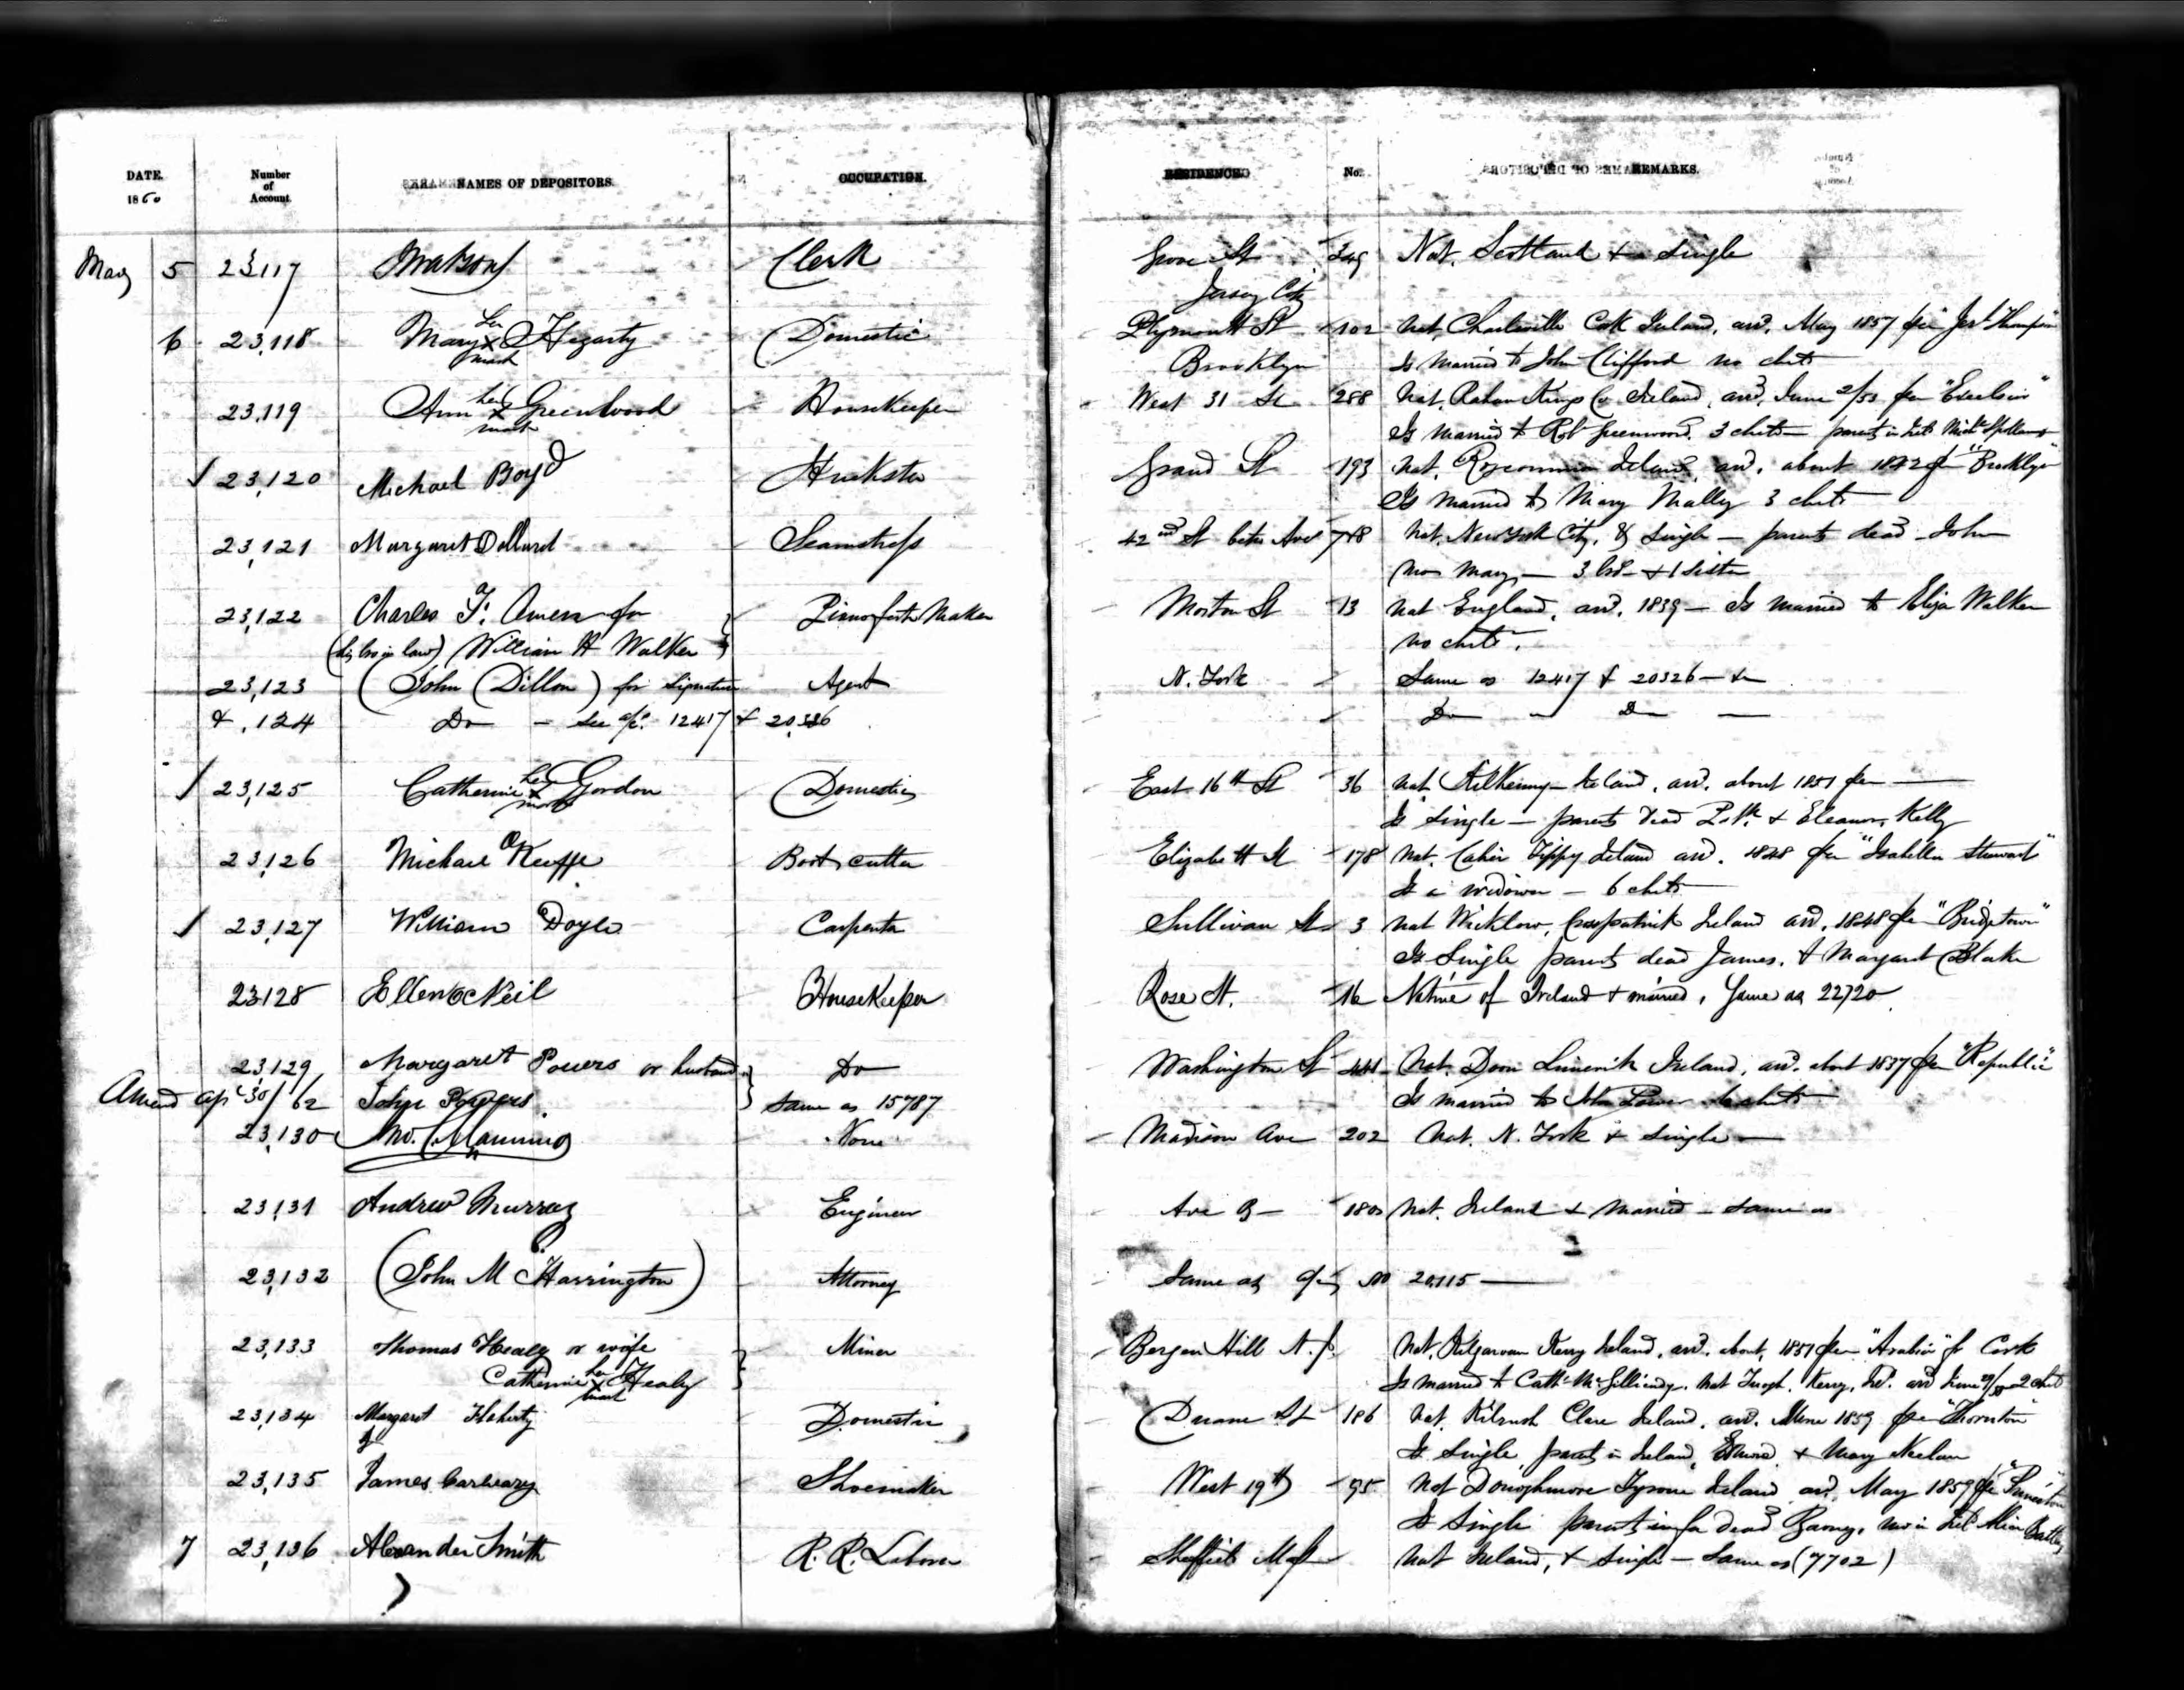 DATE. 1860 Number of Account. NAMES OF DEPOSITORS. OCCUPATION. RESIDENCE No. REMARKS.
May 5 23117 Clerk Grove St 349 Nat. Scotland & a Single
Jersey City
6 23,118 Mary her x mark Hegarty Domestic Plymouth St 102 Nat. Charleville Cork Ireland, arrd. May 1857 per
Brooklyn Is married to John Clifford no chil
23,119 Ann her x mark Greenwood Housekeeper West 31 St 288 Nat. Rahan Kings Co Ireland, arrd. June per "Excelsior"
Is married to Robt Greenwood. 3 chil — parents in
23,120 Michael Boyd Huckster Grand St 193 Nat. Roscommon Ireland, arrd. about 1842 per "Brooklyn"
Is married to Mary Mally 3 chil
23,121 Margaret Dillard Seamstress 42nd St betw Ave 7 & 8 Nat. New York City, & Single — parents dead John
Mary — 3 bro & 1 Sister
23,122 Charles F. for Pianoforte Maker Morton St 13 Nat England, arrd. 1839 — Is married to Eliza Walker
(his bro in law) William H Walker no chil.
23,123 (John Dillon) for signature Agent N. York Same as 12417 & 20326
& ,124 Do — See a/c. 12417 & 20,326 Do Do
23,125 Catherine her x mark Gordon Domestic East 16th St 36 Nat Kilkenny Ireland, arrd. about 1851 per —
Is Single — parents dead Patk. & Eleanor Kelly
23,126 Michael O'Keeffe Boot cutter Elizabeth St 178 Nat. Cahir Tippy Ireland arrd. 1848 per "Isabella Stewart"
Is a widower — 6 chil
23,127 William Doyle Carpenter Sullivan St 3 Nat Wicklow, Ireland arrd. 1848 per "Bridgetown"
Is Single parents dead James & Margaret Blake
23128 Ellen O'Neil HouseKeeper Rose St. 16 Native of Ireland & married, Same as 22720
23,129 Margaret Powers or husband Do Washington St 441 Nat. Doon Limerick Ireland, arrd. about 1837 per "Republic"
Amend Apl 30/62 John Powers same as 15787 Is married to John Power
23,130 Manning None Madison Ave 202 Nat. N. York & Single —
23,131 Andrew Murray Engineer Ave B — 180 Nat. Ireland & Married — same as
23,132 (John M Harrington) Attorney Same as No 20,115 —
23,133 Thomas Healy or wife Miner Bergen Hill N. J. Nat. Kilgarvan Kerry Ireland, arrd. about 1851 per "Arabian" fr Cork
Catherine her x mark Healy Is married to Cath. Nat Kerry, Ire. arrd June 2 chil
23,134 Margaret Flaherty Domestic Duane St 186 Nat. Kilrush Clare Ireland, arrd. June 1859 per "Thornton"
Is Single, parents in Ireland, Edmund & Mary Neelan
23,135 James Shoemaker West 19th 95 Nat Donoghmore Tyrone Ireland arrd. May 1859 per
Is Single parents dead Barney,
7 23,136 Alexander Smith R. R. Laborer Sheffield Mass Nat Ireland, & Single — Same as (7702)